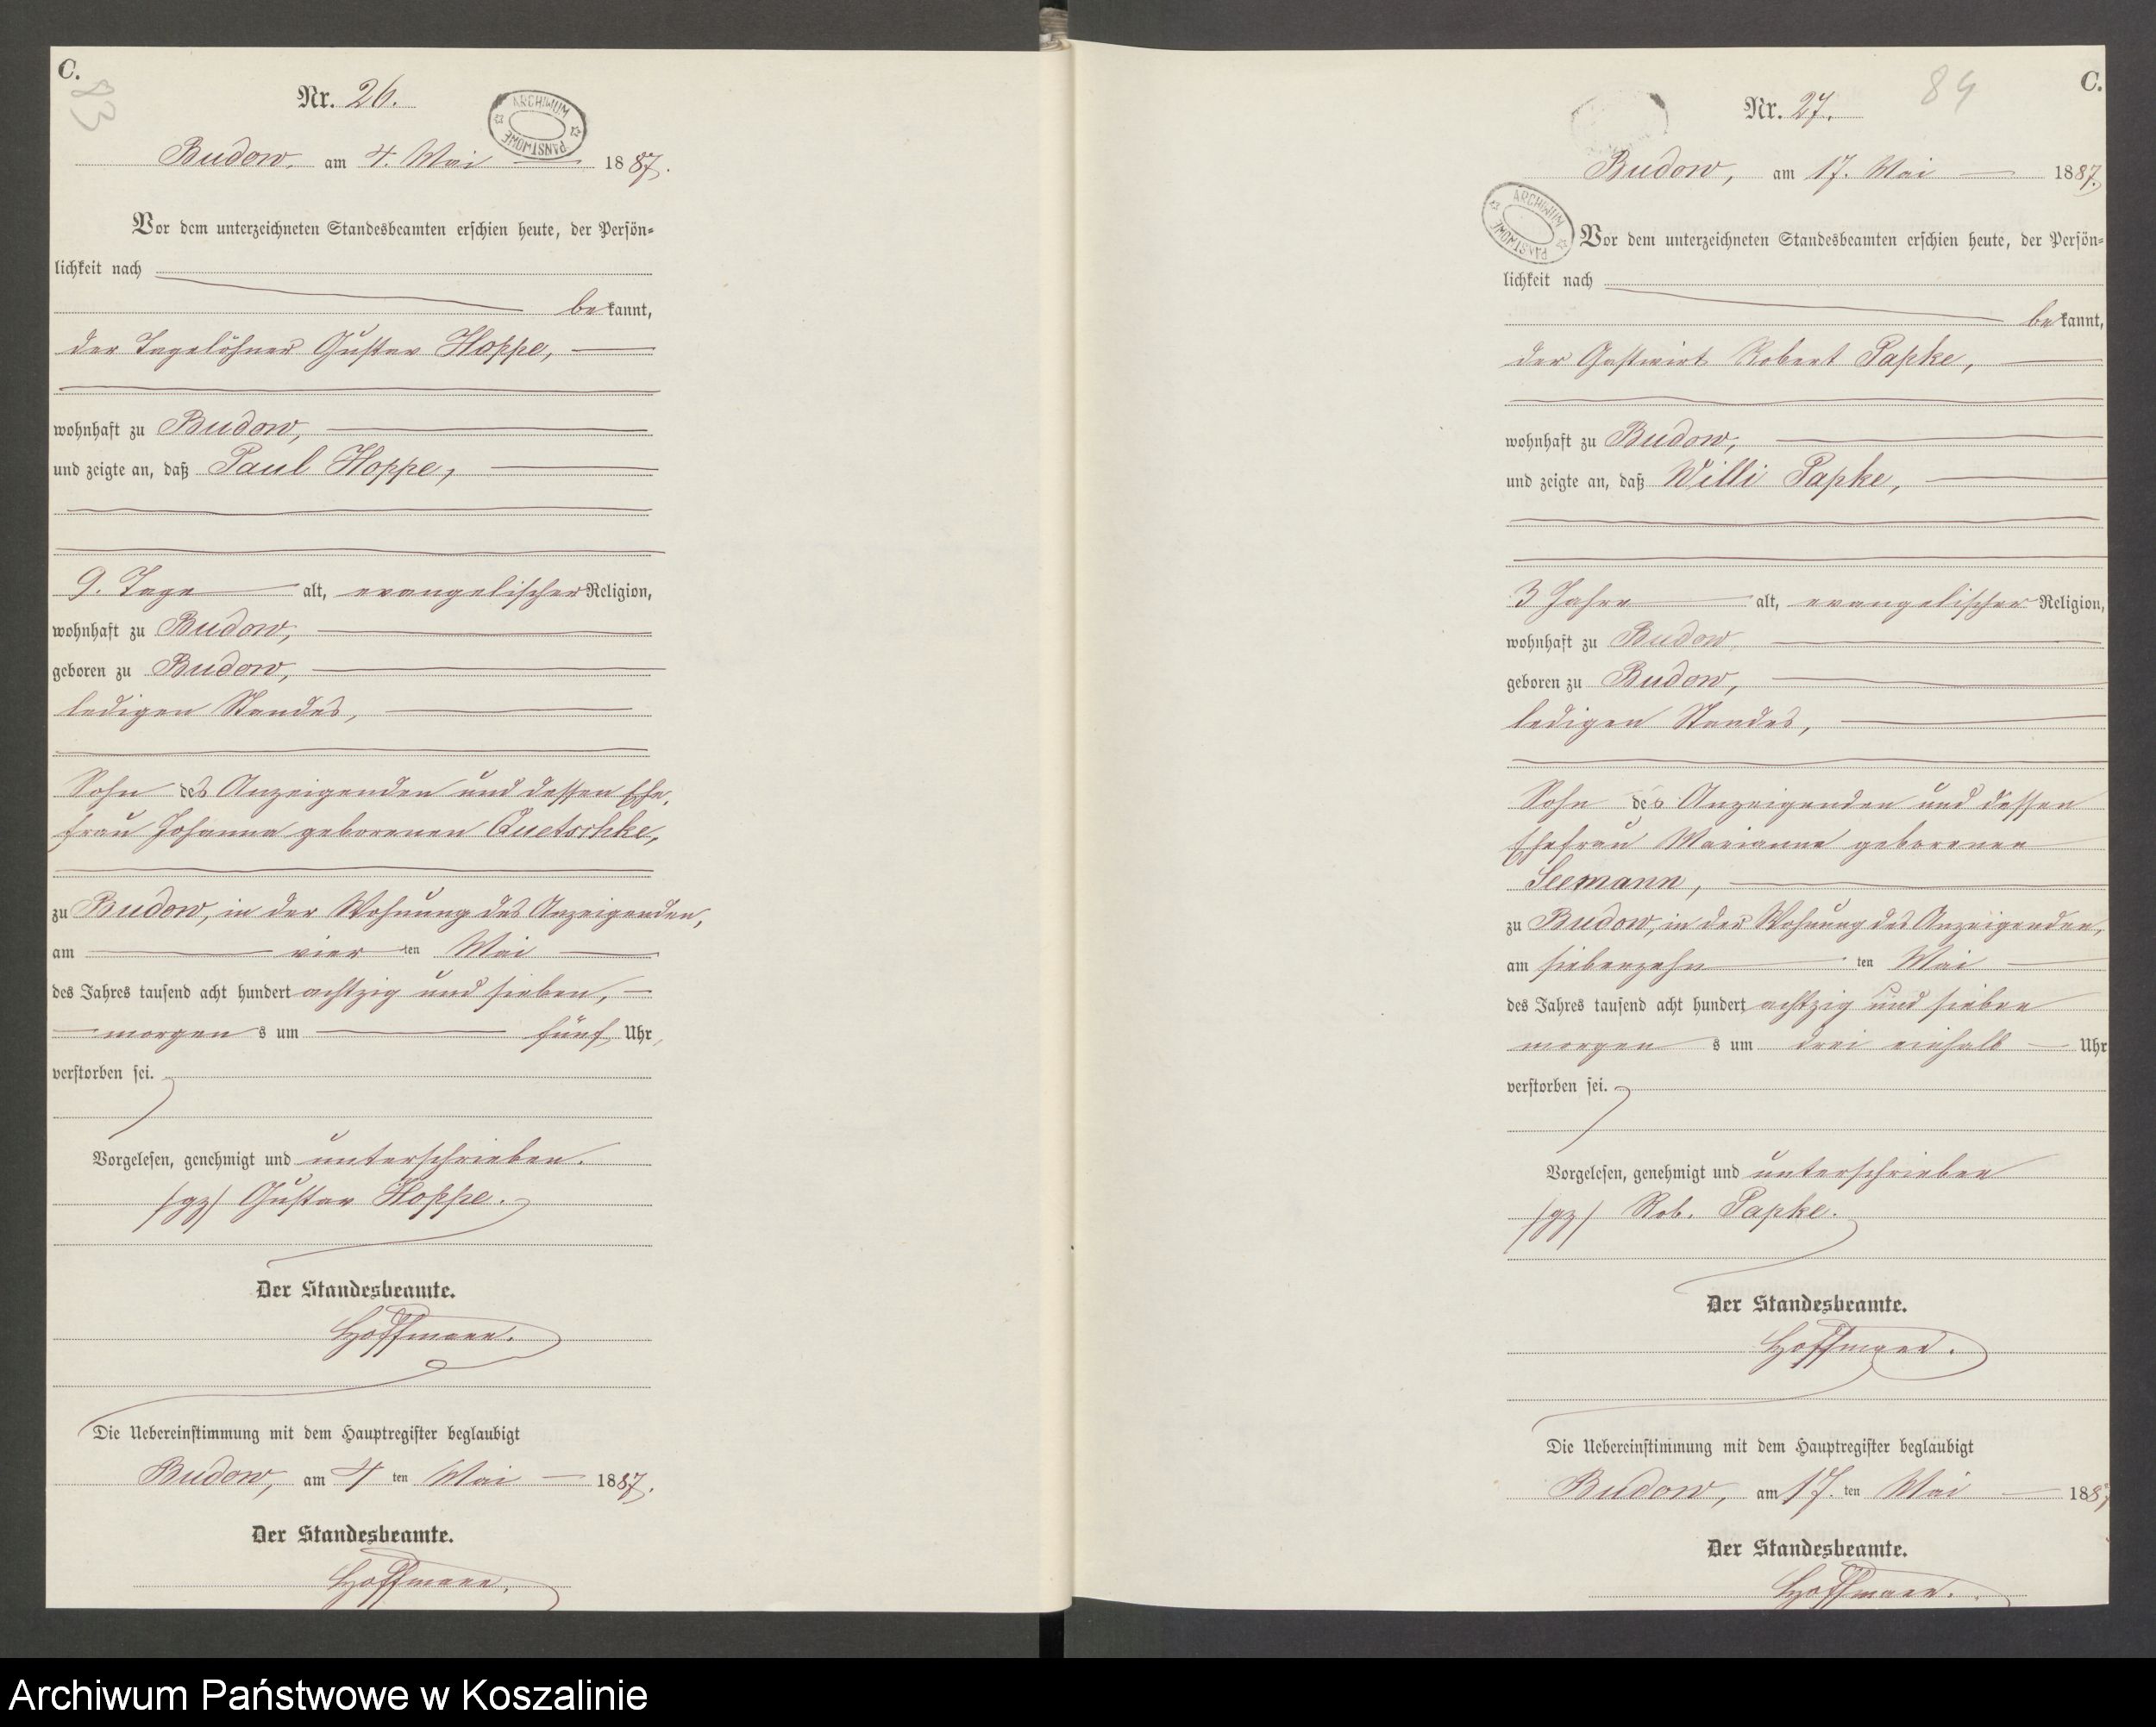 C.
83
Nr. 26.
ARCHIWUM PAŃSTWOWE
Budow, am 4. Mai 1887.
Vor dem unterzeichneten Standesbeamten erschien heute, der Persön-
lichkeit nach
bekannt,
der Tagelöhner Gustav Hoppe,
wohnhaft zu Budow,
und zeigte an, daß Paul Hoppe,
9. Tage alt, evangelischer Religion,
wohnhaft zu Budow,
geboren zu Budow,
ledigen Standes,
Sohn des Anzeigenden und dessen Ehe-
frau Johanna geborenen Quetschke,
zu Budow, in der Wohnung des Anzeigenden,
am vierten Mai
des Jahres tausend acht hundert achtzig und sieben,
morgens um fünf Uhr,
verstorben sei.
Vorgelesen, genehmigt und unterschrieben.
/gz/ Gustav Hoppe.
Der Standesbeamte.
Hoffmann.
Die Uebereinstimmung mit dem Hauptregister beglaubigt
Budow, am 4ten Mai 1887.
Der Standesbeamte.
Hoffmann.
84
C.
Nr. 27.
Budow, am 17. Mai 1887.
ARCHIWUM PAŃSTWOWE
Vor dem unterzeichneten Standesbeamten erschien heute, der Persön-
lichkeit nach
bekannt,
der Gastwirt Robert Papke,
wohnhaft zu Budow,
und zeigte an, daß Willi Papke,
3 Jahre alt, evangelischer Religion,
wohnhaft zu Budow
geboren zu Budow,
ledigen Standes,
Sohn des Anzeigenden und dessen
Ehefrau Marianne geborenen
Seemann,
zu Budow, in der Wohnung des Anzeigenden,
am siebenzehnten Mai
des Jahres tausend acht hundert achtzig und sieben
morgens um drei einhalb Uhr
verstorben sei.
Vorgelesen, genehmigt und unterschrieben
/gz/ Rob. Papke.
Der Standesbeamte.
Hoffmann.
Die Uebereinstimmung mit dem Hauptregister beglaubigt
Budow, am 17. ten Mai 1887
Der Standesbeamte.
Hoffmann.
Archiwum Państwowe w Koszalinie